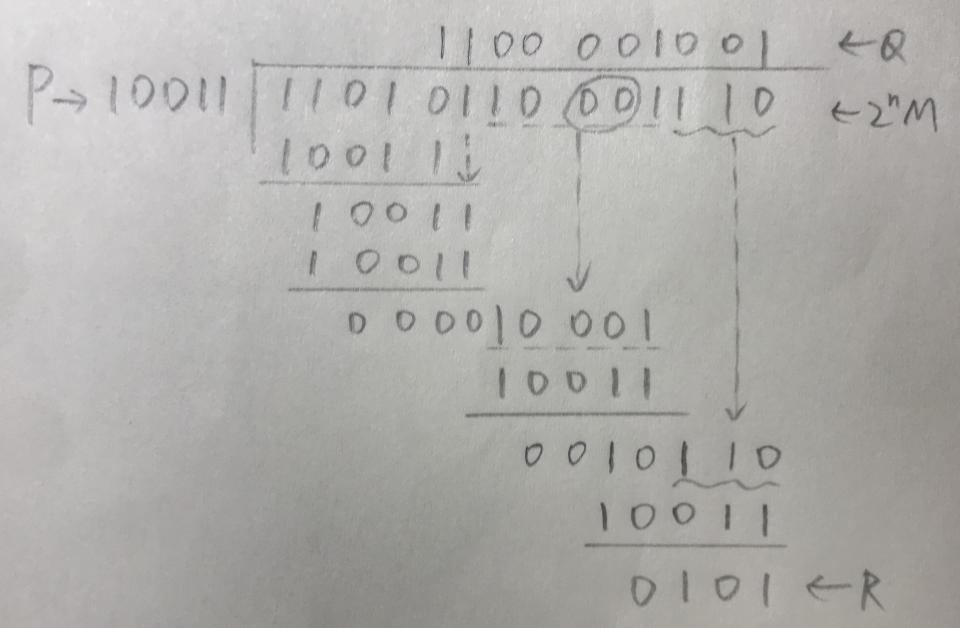 1100 001001 ←Q
P→10011 1101 0110 0011 10 ←2ⁿM
10011
10011
10011
0 00010 001
10011
0010110
10011
0101 ←R